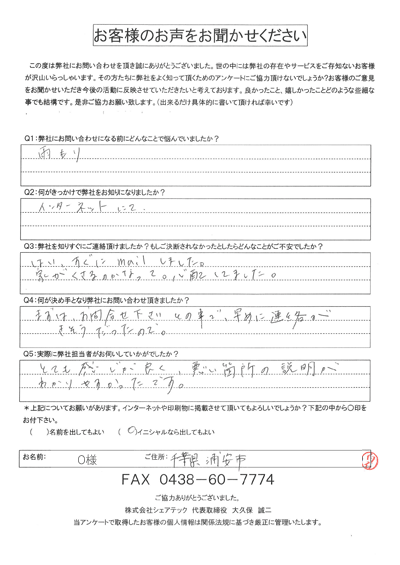 お客様のお声をお聞かせください
この度は弊社にお問い合わせを頂き誠にありがとうございました。世の中には弊社の存在やサービスをご存知ないお客様
が沢山いらっしゃいます。その方たちに弊社をよく知って頂くためのアンケートにご協力頂けないでしょうか?お客様のご意見
をお聞かせいただき今後の活動に反映させていただきたいと考えております。良かったこと、嬉しかったことどのような些細な
事でも結構です。是非ご協力お願い致します。(出来るだけ具体的に書いて頂ければ幸いです)
Q1:弊社にお問い合わせになる前にどんなことで悩んでいましたか?
雨もり
Q2:何がきっかけで弊社をお知りになりましたか?
インターネットにて.
Q3:弊社を知りすぐにご連絡頂けましたか?もしご決断されなかったとしたらどんなことがご不安でしたか?
はい、すぐに mail しました。
家がくさるのがこわくて。心配してました。
Q4:何が決め手となり弊社にお問い合わせ頂きましたか?
まずは、お問合せ下さい との事で、早めに連絡が
きそうだったので。
Q5:実際に弊社担当者がお伺いしていかがでしたか?
とても感じが良く、悪い箇所の説明が
わかりやすかったです。
*上記についてお願いがあります。インターネットや印刷物に掲載させて頂いてもよろしいでしょうか?下記の中から〇印を
お付下さい。
( )名前を出してもよい (〇)イニシャルなら出してもよい
お名前: O様 ご住所: 千葉県浦安市
FAX 0438-60-7774
ご協力ありがとうございました。
株式会社シェアテック 代表取締役 大久保 誠二
当アンケートで取得したお客様の個人情報は関係法規に基づき厳正に管理いたします。